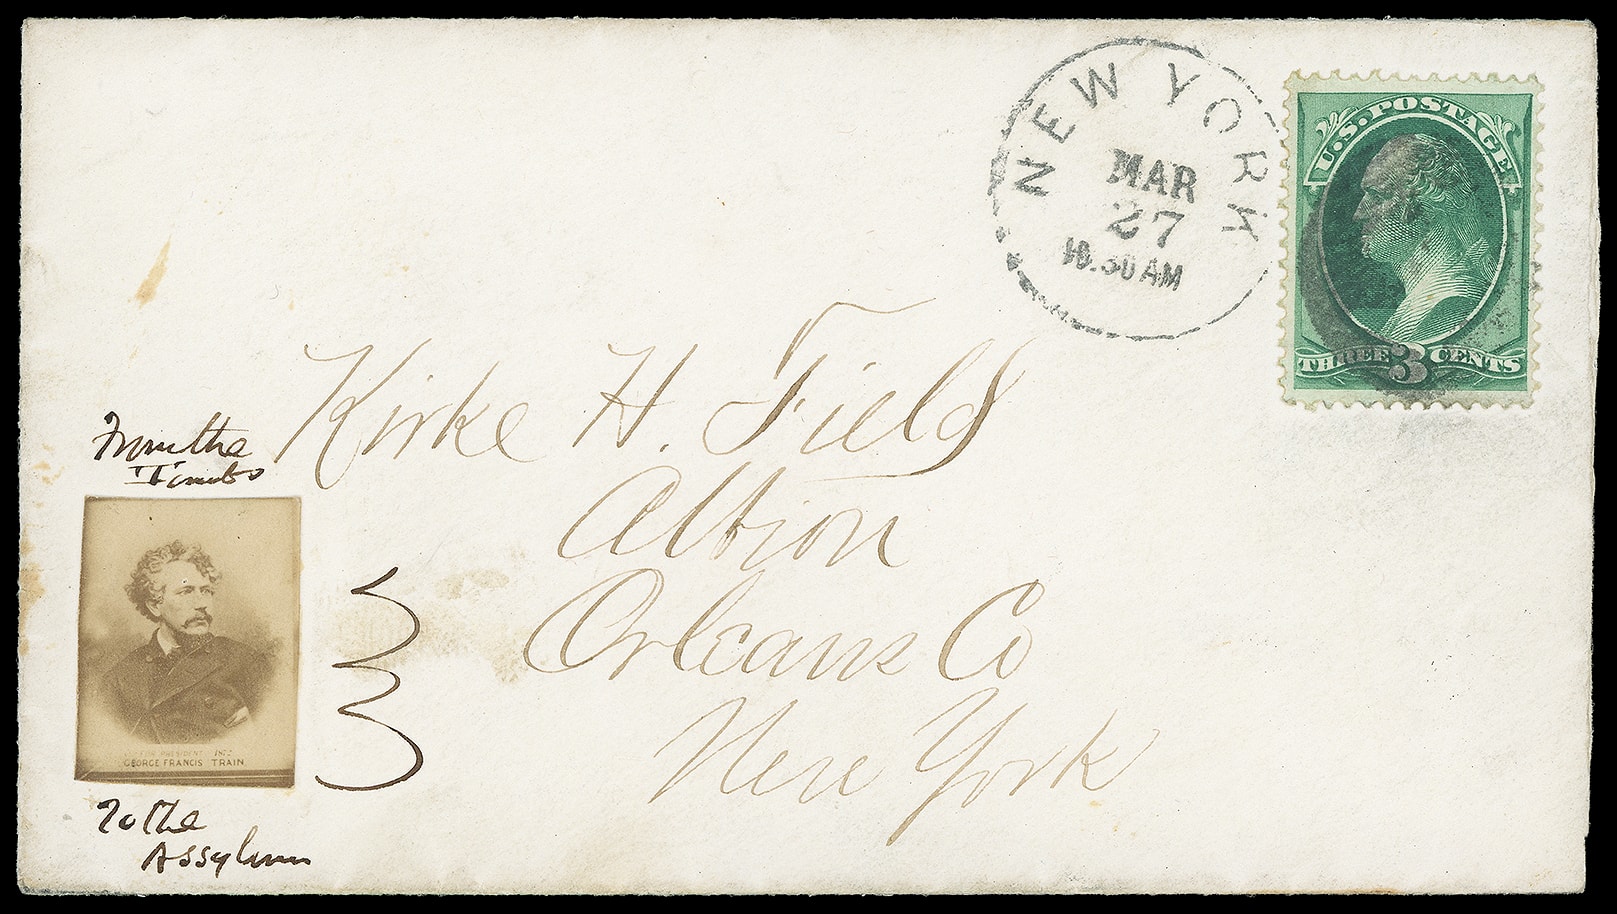 NEW YORK
MAR
27
10.30 AM
U.S. POSTAGE
THREE 3 CENTS
Kirke H. Field
Albion
Orleans Co
New York
From the
Tombs
FOR PRESIDENT 1872
GEORGE FRANCIS TRAIN
To the
Assylum